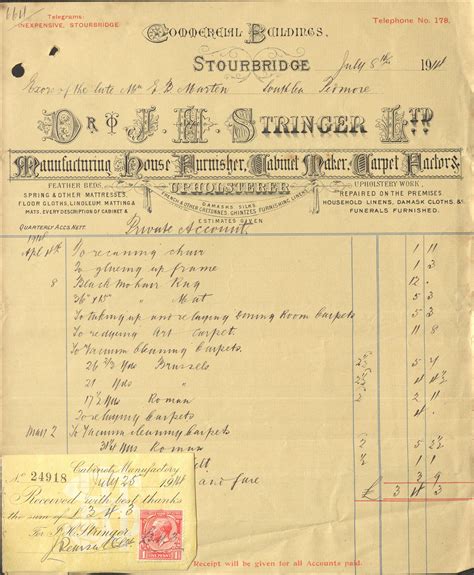 6611
Telegrams:
INEXPENSIVE, STOURBRIDGE.
COMMERCIAL BUILDINGS,
Telephone No. 178.
STOURBRIDGE
July 8th 1914
Exors of the late Mr E B Marten
Pedmore
Dr to J. H. STRINGER LTD
Manufacturing House Furnisher, Cabinet Maker, Carpet Factor &
UPHOLSTERER
FEATHER BEDS,
SPRING & OTHER MATTRESSES,
FLOOR CLOTHS, LINOLEUM, MATTING &
MATS, EVERY DESCRIPTION OF CABINET &
DAMASKS SILKS,
FRENCH & OTHER CRETONNES, CHINTZES FURNISHING LINENS
ESTIMATES GIVEN
UPHOLSTERY WORK,
REPAIRED ON THE PREMISES
HOUSEHOLD LINENS, DAMASK CLOTHS, &c
FUNERALS FURNISHED.
QUARTERLY ACCS NETT.
Private Account
Apl 4th To recaning chair 1 11
To glueing up frame 1
8 Black Mohair Rug 12
36 x 15 " Mat 5 3
To taking up and relaying Dining Room Carpets
To redyeing Art Carpet 11 8
To Vacuum Cleaning Carpets.
26 2/3 Yds Brussels 2½ 5
21 Yds
17½ Yds Roman
To relaying Carpets
To Vacuum cleaning Carpets
Yds Roman
and fare 3 9
£ 3 4 3
Cabinet Manufactory
No 24918
July 25 1914
Received with best thanks
the sum of £ 3 4 3
For J. H. Stringer
Receipt will be given for all Accounts paid.